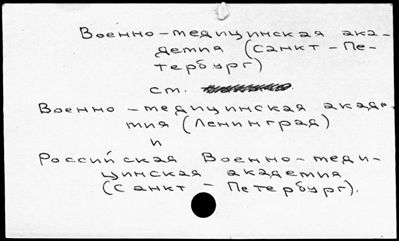 Военно-медицинская ака-
демия (Санкт-Пе-
тербург)
ст.
Военно-медицинская академ
мия (Ленинград)
и
Российская Военно-меди-
цинская академия
(Санкт-Петербург).